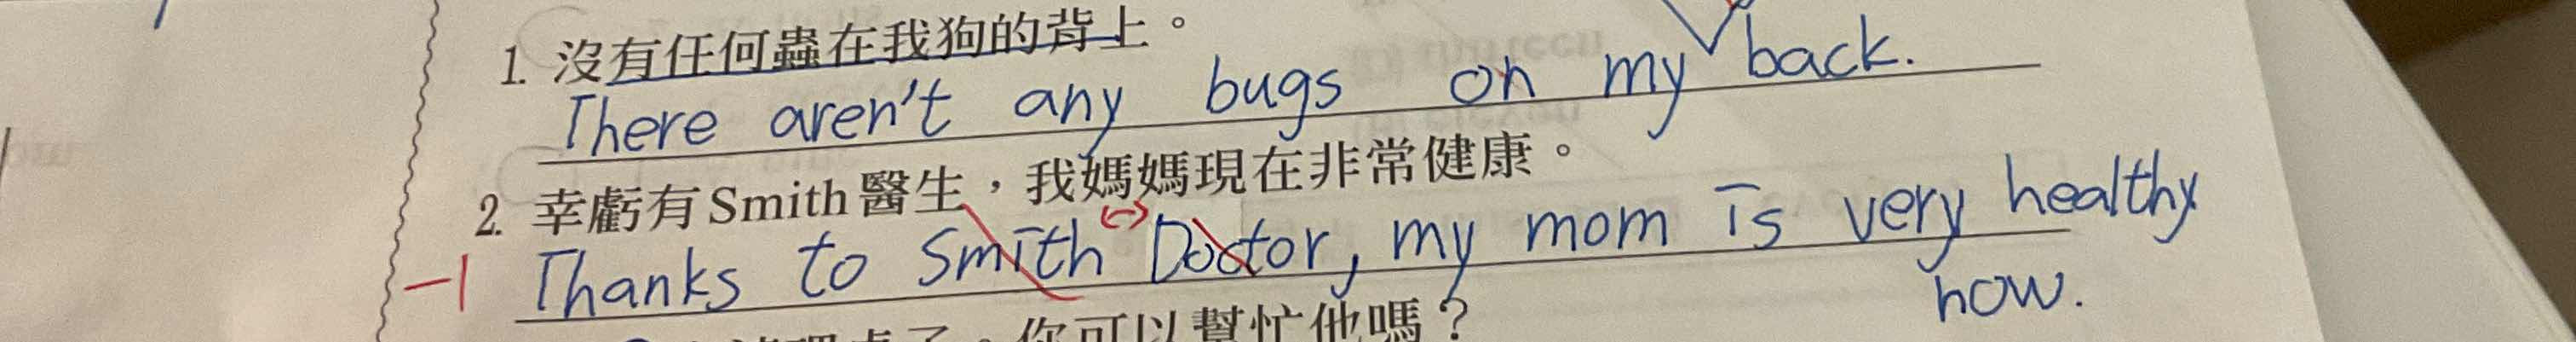 1. 沒有任何蟲在我狗的背上。
There aren't any bugs on my back.
2. 幸虧有Smith醫生，我媽媽現在非常健康。
-1 Thanks to Smith Doctor, my mom is very healthy
now.
桌子。你可以幫忙他嗎？